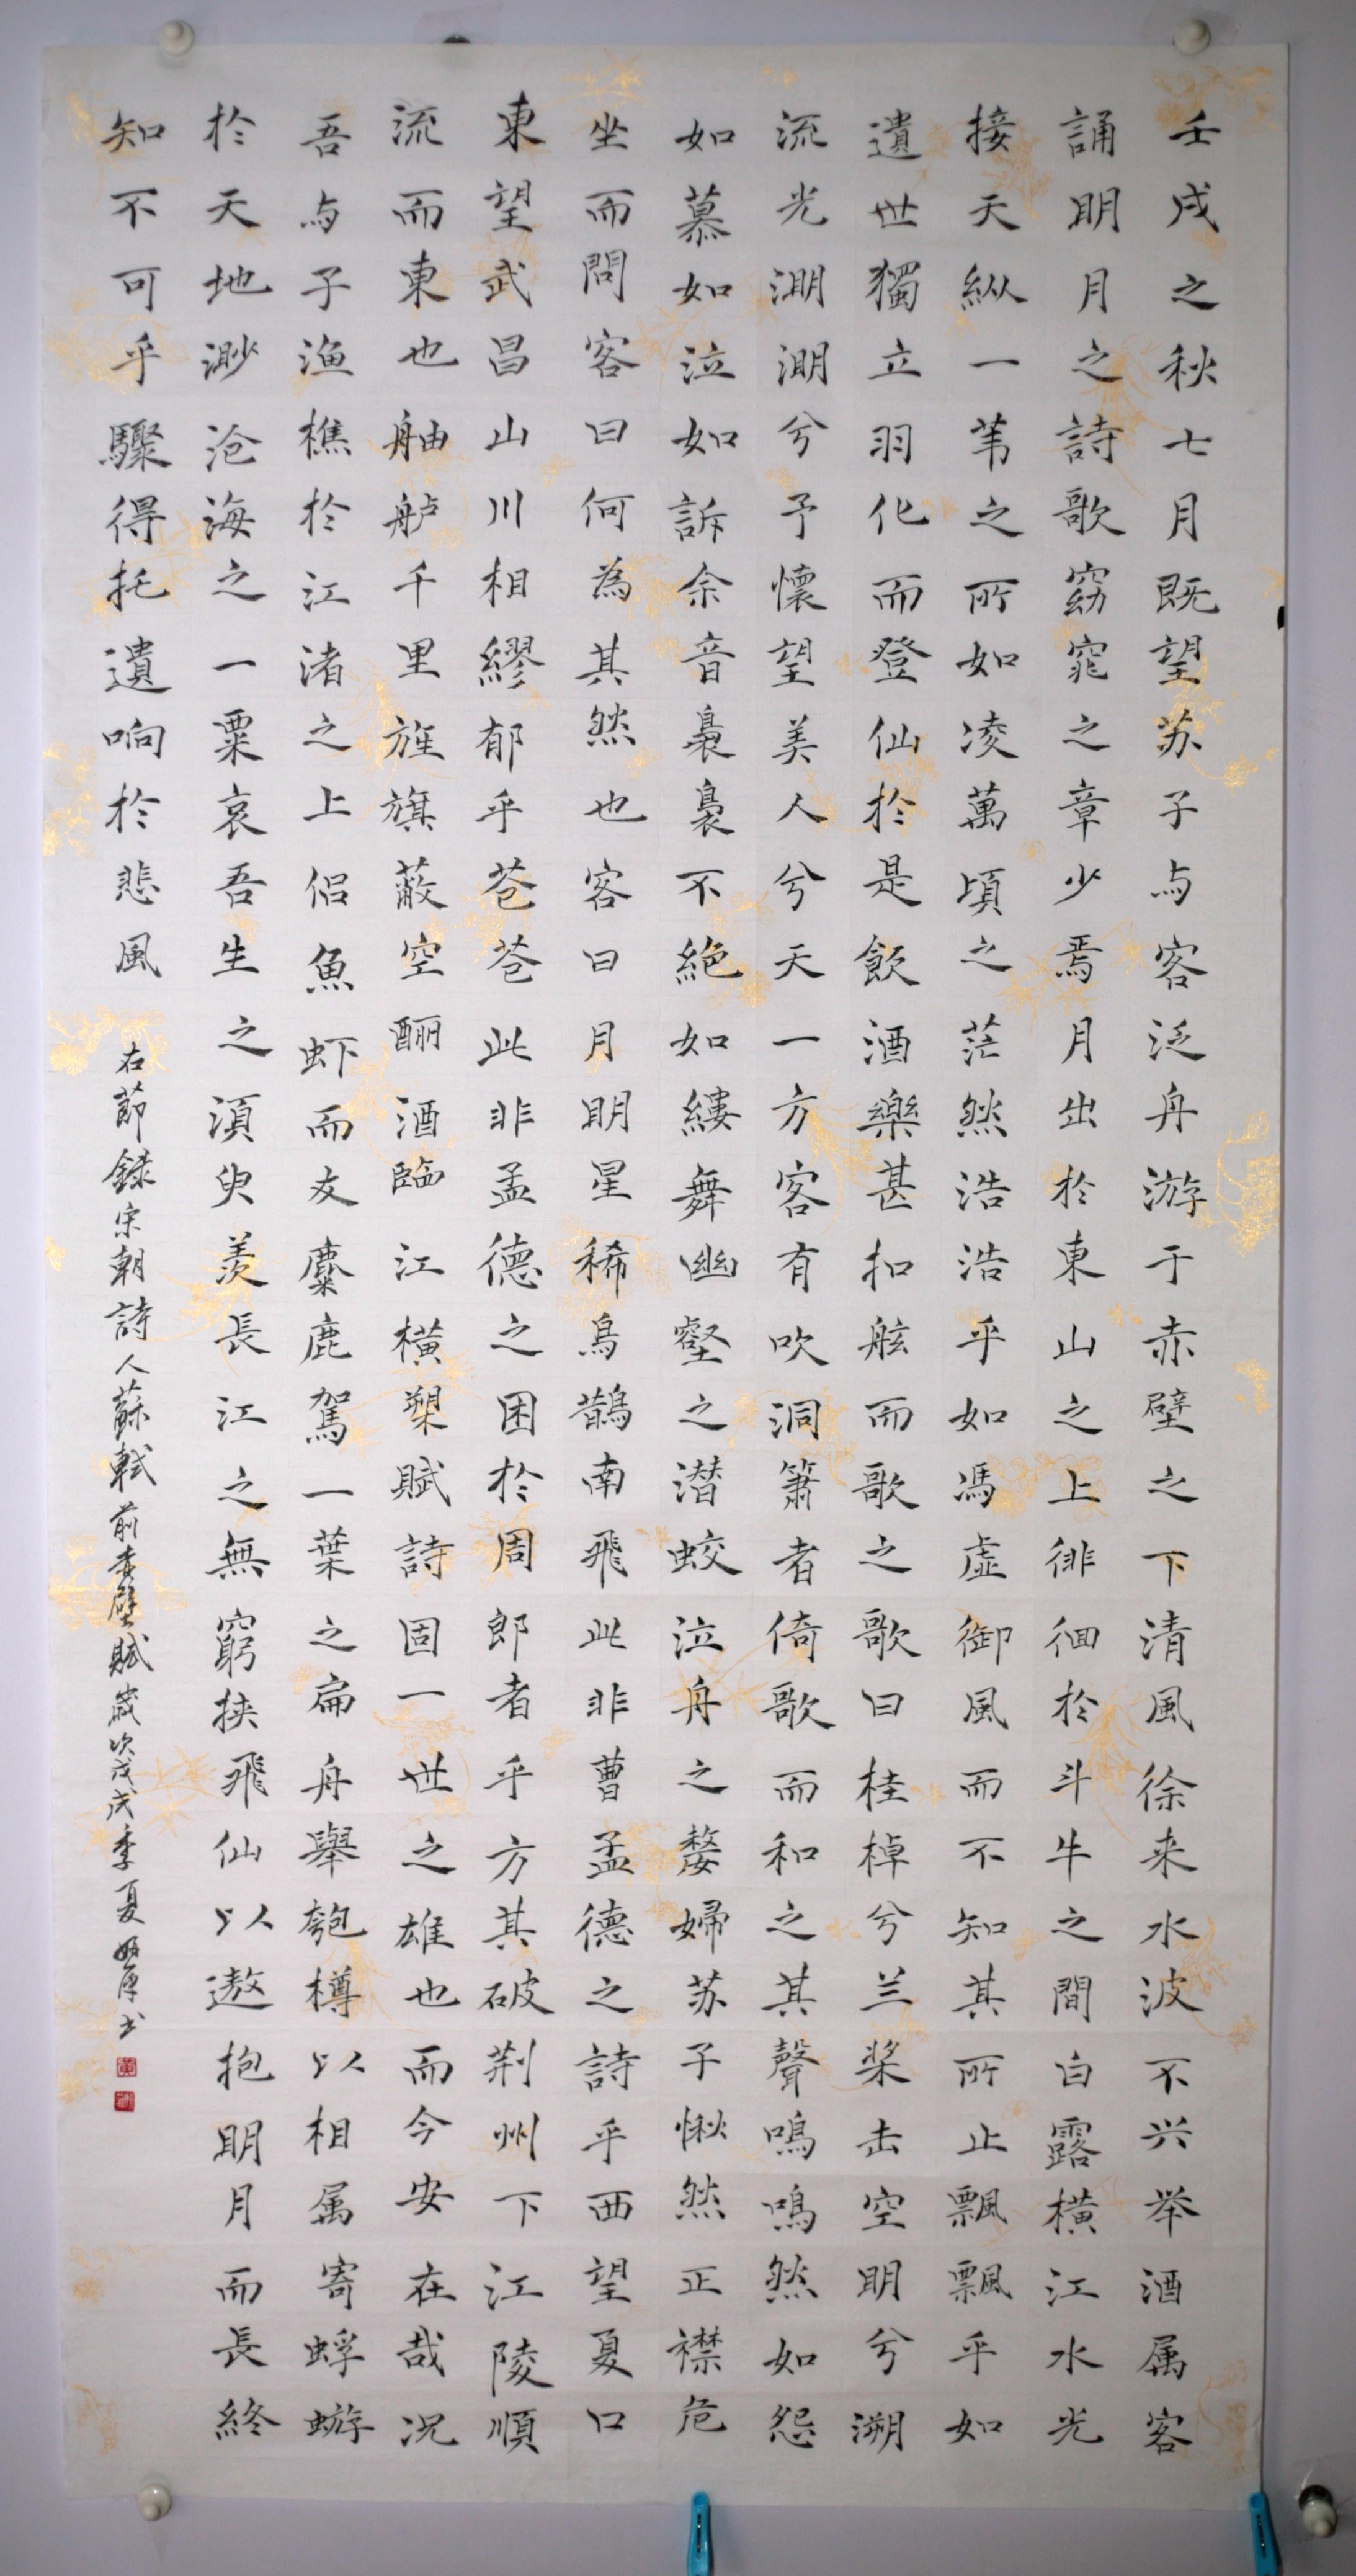 壬戌之秋七月既望苏子与客泛舟游于赤壁之下清風徐来水波不兴举酒属客
誦明月之詩歌窈窕之章少焉月出於東山之上徘徊於斗牛之間白露橫江水光
接天縱一苇之所如凌萬頃之茫然浩浩乎如馮虛御風而不知其所止飄飄乎如
遺世獨立羽化而登仙於是飲酒樂甚扣舷而歌之歌曰桂棹兮兰桨击空明兮溯
流光淜淜兮予懷望美人兮天一方客有吹洞箫者倚歌而和之其聲鳴鳴然如怨
如慕如泣如訴余音裊裊不絕如縷舞幽壑之潜蛟泣舟之嫠婦苏子愀然正襟危
坐而問客曰何為其然也客曰月明星稀鳥鵲南飛此非曹孟德之詩乎西望夏口
東望武昌山川相繆郁乎苍苍此非孟德之困於周郎者乎方其破荆州下江陵順
流而東也舳舻千里旌旗蔽空酾酒臨江橫槊賦詩固一世之雄也而今安在哉况
吾与子渔樵於江渚之上侣魚虾而友麋鹿駕一葉之扁舟舉匏樽以相属寄蜉蝣
於天地渺沧海之一粟哀吾生之須臾羡長江之無窮挟飛仙以遨抱明月而長終
知不可乎驟得托遺响於悲風
右節錄宋朝詩人蘇軾前赤壁賦歲次戊戌季夏